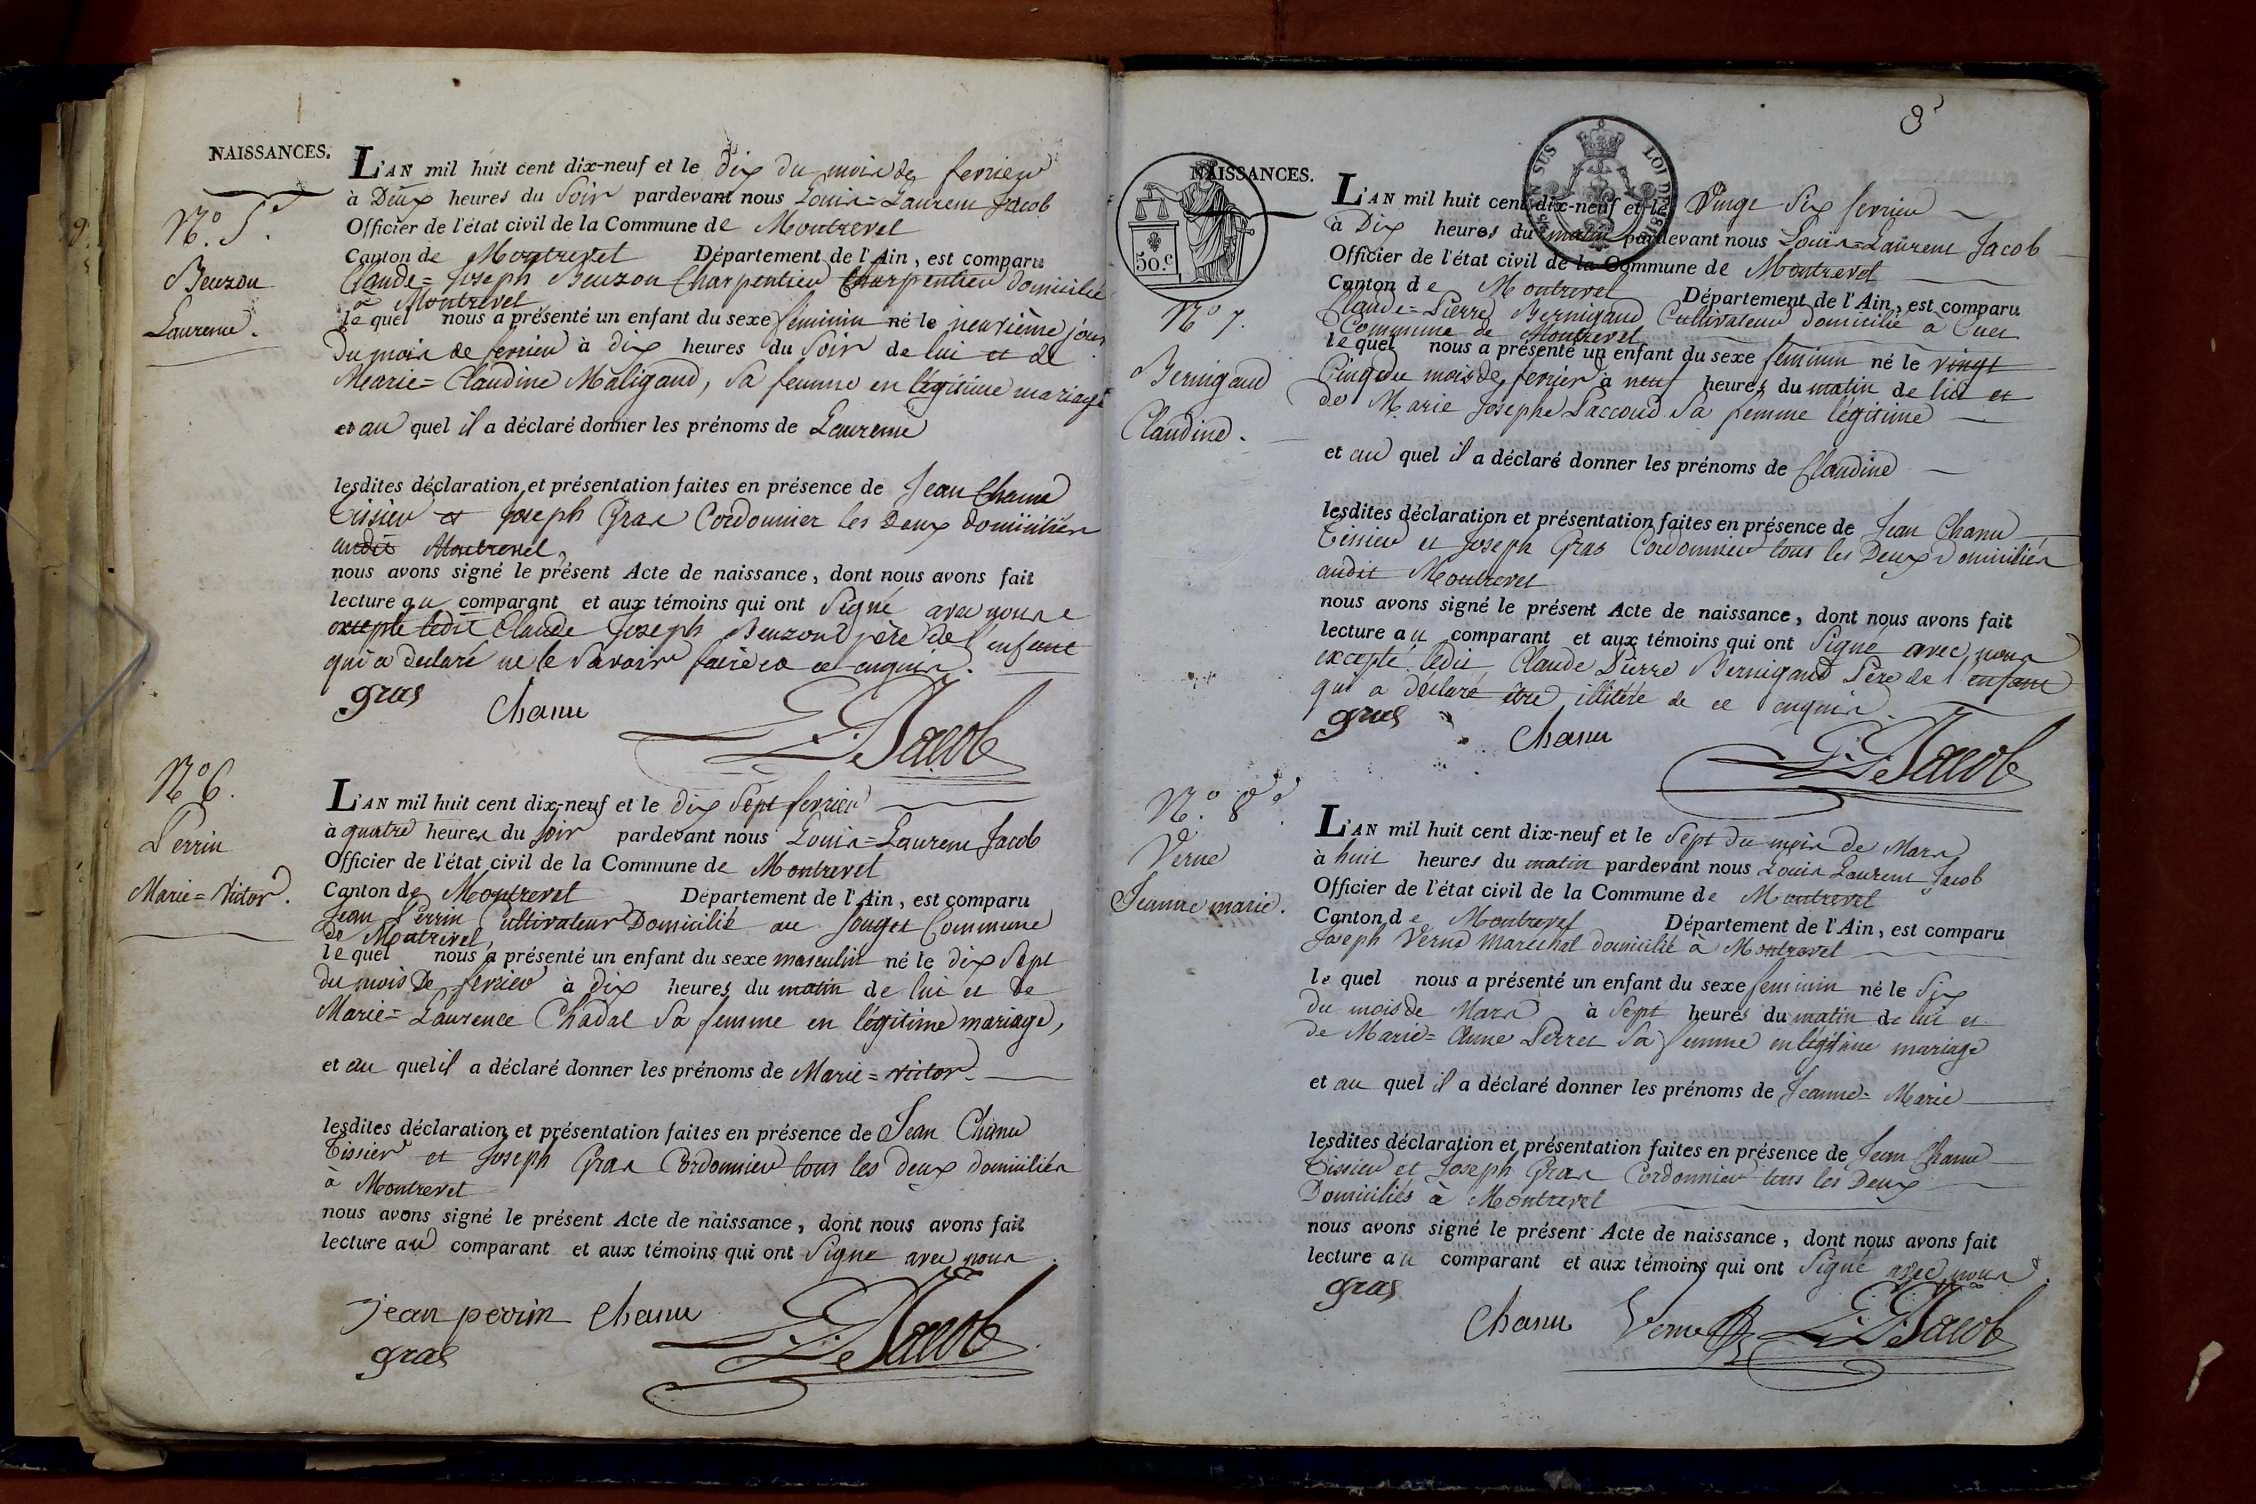 NAISSANCES.
N.o 5e.
Beuzon
Laurence.
L'AN mil huit cent dix-neuf et le dix du mois de fevrier
à Deux heures du Soir pardevant nous Louis=Laurent Jacob
Officier de l'état civil de la Commune de Montrevel
Canton de Montrevel Département de l'Ain, est comparu
Claude=Joseph Beuzon Charpentier Charpentier domicilié
à Montrevel
le quel nous a présenté un enfant du sexe feminin né le neuvième jour
du mois de fevrier à dix heures du Soir de lui et de
Marie=Claudine Maligand, sa femme en légitime mariage
et au quel il a déclaré donner les prénoms de Laurence
lesdites déclaration et présentation faites en présence de Jean Chanu
Tissier et Joseph Gras Cordonnier les Deux domiciliés
audit Montrevel,
nous avons signé le présent Acte de naissance, dont nous avons fait
lecture au comparant et aux témoins qui ont Signé avec nous
excepté ledit Claude Joseph Beuzon père de l'enfant
qui a declaré ne le Savoir faire de ce enquis.
gras chanu L. L. Jacob
N.o 6.
Perrin
Marie=Victor.
L'AN mil huit cent dix-neuf et le dix Sept fevrier
à quatre heures du Soir pardevant nous Louis=Laurent Jacob
Officier de l'état civil de la Commune de Montrevel
Canton de Montrevel Département de l'Ain, est comparu
Jean Perrin Cultivateur Domicilié au Commune
de Montrevel,
le quel nous a présenté un enfant du sexe masculin né le dix Sept
du mois De fevrier à dix heures du matin de lui et De
Marie=Laurence Chadal Sa femme en légitime mariage,
et au quel il a déclaré donner les prénoms de Marie=Victor.
lesdites déclaration et présentation faites en présence de Jean Chanu
Tissier et Joseph Gras Cordonnier tous les deux domiciliés
à Montrevel
nous avons signé le présent Acte de naissance, dont nous avons fait
lecture au comparant et aux témoins qui ont Signé avec nous
jean perrin chanu L. L. Jacob
gras
8
NAISSANCES.
50.c
LOI DE 1816
N.o 7.
Bernigaud
Claudine.
L'AN mil huit cent dix-neuf et le Vingt Six fevrier
à Dix heures du matin pardevant nous Louis=Laurent Jacob
Officier de l'état civil de la Commune de Montrevel
Canton de Montrevel Département de l'Ain, est comparu
Claude=Pierre Bernigaud Cultivateur domicilié à Cuet
Commune de Montrevel
le quel nous a présenté un enfant du sexe feminin né le vingt
Cinq du mois de fevrier à neuf heures du matin de lui et
de Marie Josephe Paccoud Sa femme légitime
et au quel il a déclaré donner les prénoms de Claudine
lesdites déclaration et présentation faites en présence de Jean Chanu
Tissier et Joseph Gras Cordonnier tous les Deux Domiciliés
audit Montrevel
nous avons signé le présent Acte de naissance, dont nous avons fait
lecture au comparant et aux témoins qui ont Signé avec nous
excepté ledit Claude Pierre Bernigaud Père de l'enfant
qui a déclaré être illitéré de ce enquis.
gras chanu L. L. Jacob
N.o 8e.
Verne
Jeanne marie.
L'AN mil huit cent dix-neuf et le Sept du mois de Mars
à huit heures du matin pardevant nous Louis Laurent Jacob
Officier de l'état civil de la Commune de Montrevel
Canton de Montrevel Département de l'Ain, est comparu
Joseph Verne Marechal domicilié à Montrevel
le quel nous a présenté un enfant du sexe feminin né le Six
du mois de Mars à Sept heures du matin de lui et
de Marie=Anne Perret Sa femme en légitime mariage
et au quel il a déclaré donner les prénoms de Jeanne=Marie
lesdites déclaration et présentation faites en présence de Jean Chanu
Tissier et Joseph Gras Cordonnier tous les Deux
Domiciliés à Montrevel
nous avons signé le présent Acte de naissance, dont nous avons fait
lecture au comparant et aux témoins qui ont Signé avec nous
gras
chanu Verne L. L. Jacob